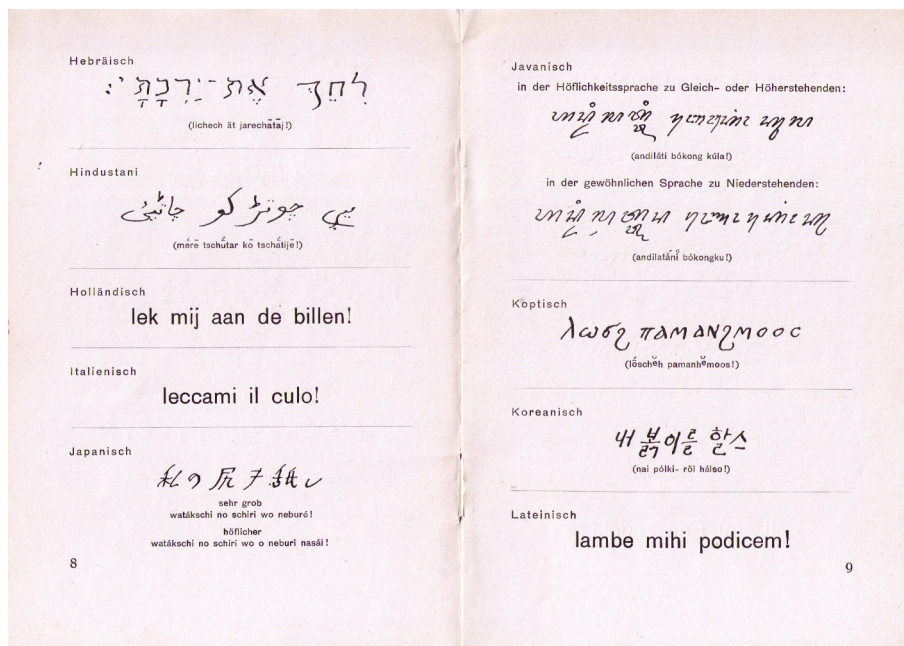 Hebräisch
לִחֵךְ אֶת־יַרְכָתָי׃
(lichech ät jarechātāj!)
Hindustani
میری چوتڑ کو چاٹیئے
(mērē tschūtar kō tschātijē!)
Holländisch
lek mij aan de billen!
Italienisch
leccami il culo!
Japanisch
私の尻ヲ舐し
sehr grob
watákschi no schiri wo neburé!
höflicher
watákschi no schiri wo o neburi nasái!
8
Javanisch
in der Höflichkeitssprache zu Gleich- oder Höherstehenden:
(andiláti bókong kúla!)
in der gewöhnlichen Sprache zu Niederstehenden:
(andilatánī bókongku!)
Koptisch
ⲗⲱϭϩ ⲡⲁⲙⲁⲛϩⲙⲟⲟⲥ
(lṓschĕh pamanhĕmoos!)
Koreanisch
내 볽이를 할스
(nai pólki- rŏl hálso!)
Lateinisch
lambe mihi podicem!
9